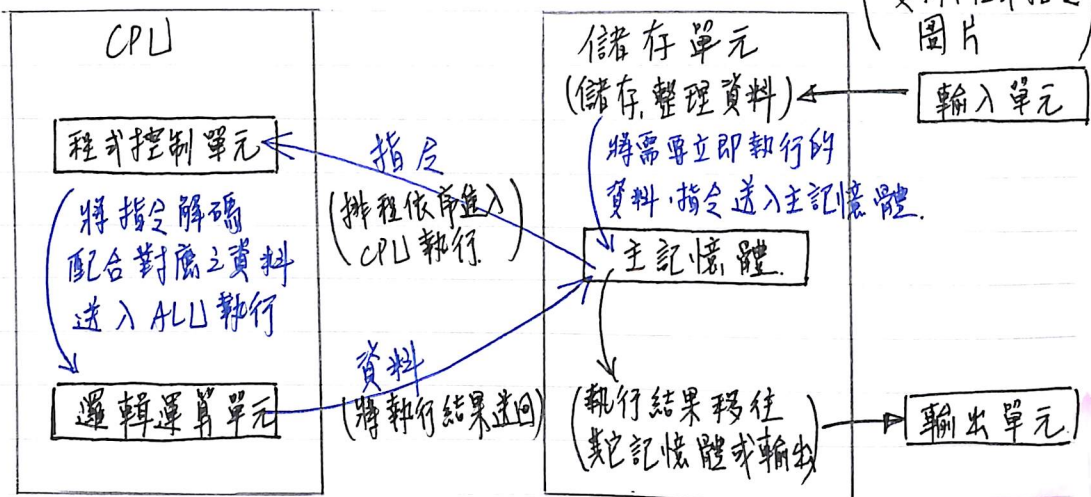 CPU
程式控制單元
將指令解碼
配合對應之資料
送入ALU執行
邏輯運算單元
指令
(排程依序進入
CPU執行.)
資料
(將執行結果送回)
儲存單元
(儲存,整理資料)
將需要立即執行的
資料,指令送入主記憶體.
主記憶體.
(執行結果移往
其它記憶體或輸出)
圖片
輸入單元
輸出單元